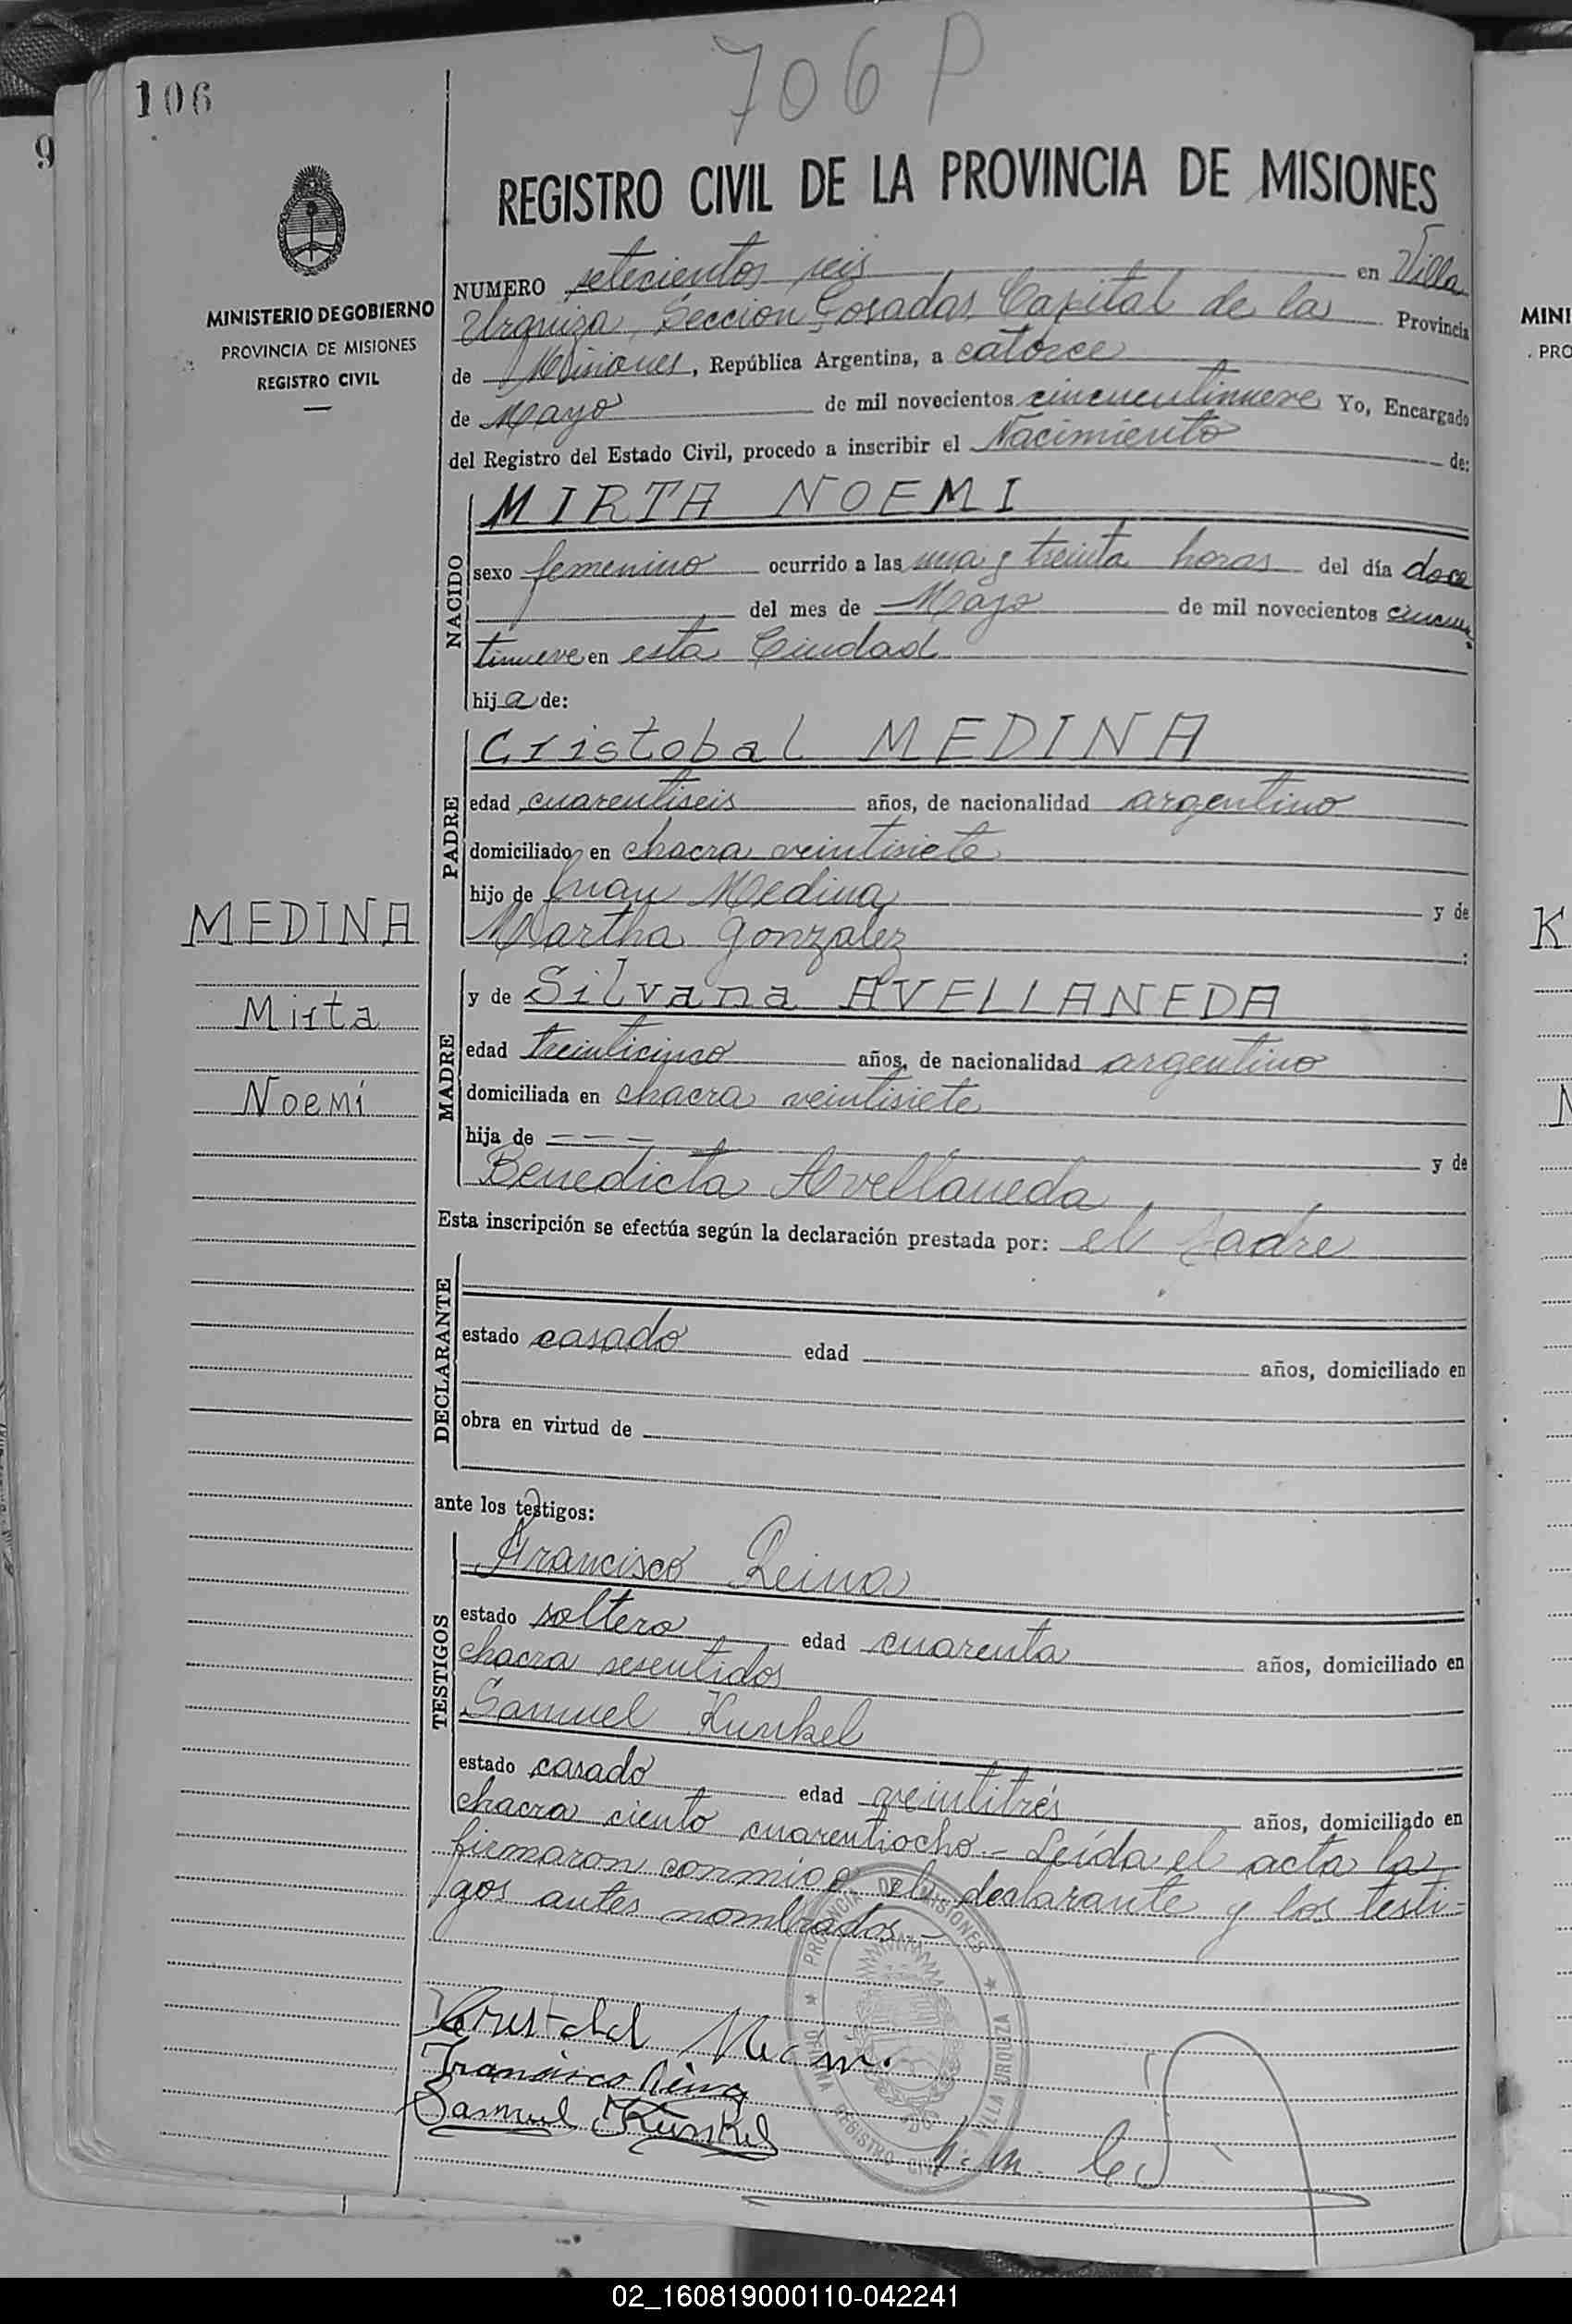 706 P
106
9
REGISTRO CIVIL DE LA PROVINCIA DE MISIONES
MINISTERIO DE GOBIERNO
PROVINCIA DE MISIONES
REGISTRO CIVIL
NUMERO setecientos seis en Villa
Urquiza, Seccion Posadas, Capital de la Provincia
de Misiones, República Argentina, a catorce
de Mayo de mil novecientos cincuentinueve Yo, Encargado
del Registro del Estado Civil, procedo a inscribir el Nacimiento de:
NACIDO
MIRTA NOEMI
sexo femenino ocurrido a las una y treinta horas del día doce
del mes de Mayo de mil novecientos cincuen
tinueve en esta Ciudad
hij a de:
PADRE
Cristobal MEDINA
edad cuarentiseis años, de nacionalidad argentino
domiciliado en chacra veintisiete
hijo de Juan Medina y de
Martha Gonzalez :
MEDINA
Mirta
Noemí
MADRE
y de Silvana AVELLANEDA
edad treinticinco años, de nacionalidad argentino
domiciliada en chacra veintisiete
hija de - - - y de
Benedicta Avellaneda
Esta inscripción se efectúa según la declaración prestada por: el padre
DECLARANTE
estado casado edad años, domiciliado en
obra en virtud de
ante los testigos:
TESTIGOS
Francisco Reina
estado soltero edad cuarenta años, domiciliado en
chacra sesentidos
Samuel Kunkel
estado casado edad veintitrés años, domiciliado en
chacra ciento cuarentiocho.- Leída el acta la
firmaron conmigo el declarante y los testi=
gos antes nombrados.-
PROVINCIA DE MISIONES
OFICINA REGISTRO CIVIL
VILLA URQUIZA
Francisco Reina
Samuel Kunkel
MINI
PRO
K
02_160819000110-042241